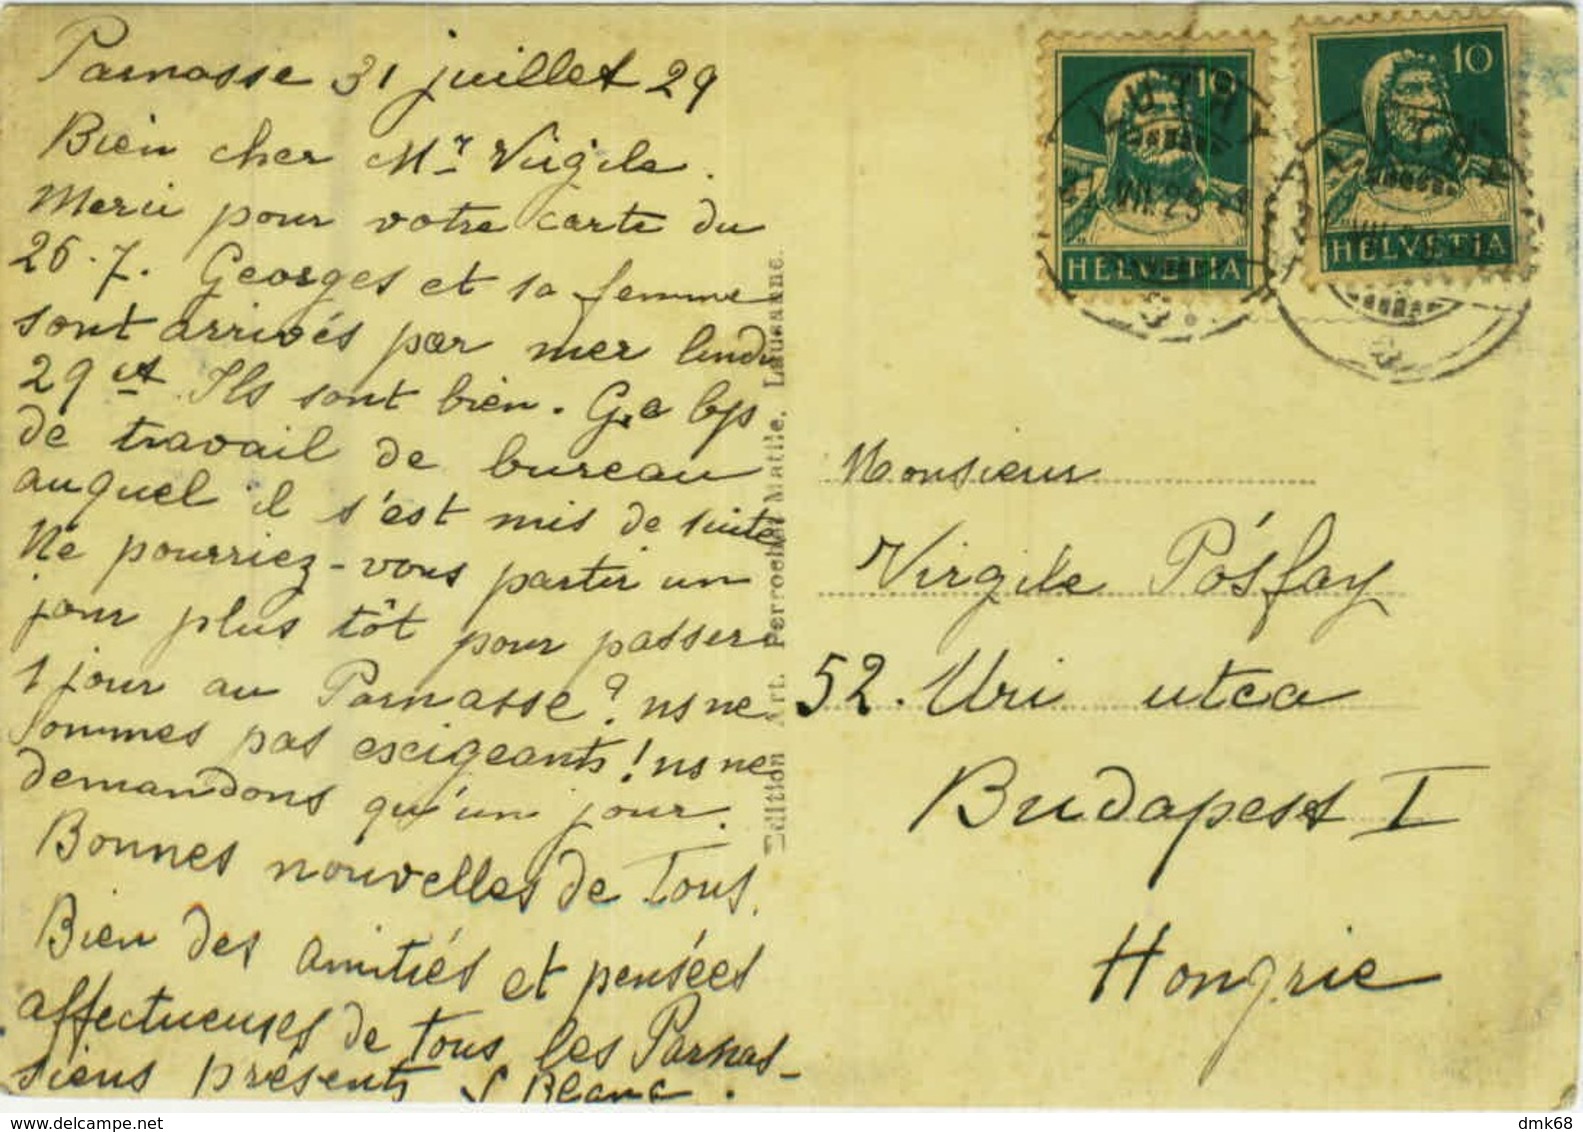 Parnasse 31 juillet 29
Bien cher Mr Virgile.
Merci pour votre carte du
26.7. Georges et sa femme
sont arrivés par mer lundi
29 ct. Ils sont bien. G. a bps
de travail de bureau
auquel il s'est mis de suite
Ne pourriez-vous partir un
jour plus tôt pour passer
1 jour au Parnasse? ns ne
sommes pas exigeants! ns ne
demandons qu'un jour.
Bonnes nouvelles de Tous.
Bien des amitiés et pensées
affectueuses de tous les Parnas-
siens présents Blanc.
Edition Art. Perrochet Matile. Lausanne.
10
HELVETIA
10
HELVETIA
LUTRY
VII.29
LUTRY
Monsieur
Virgile Pósfay
52. Uri utca
Budapest I
Hongrie
dmk68